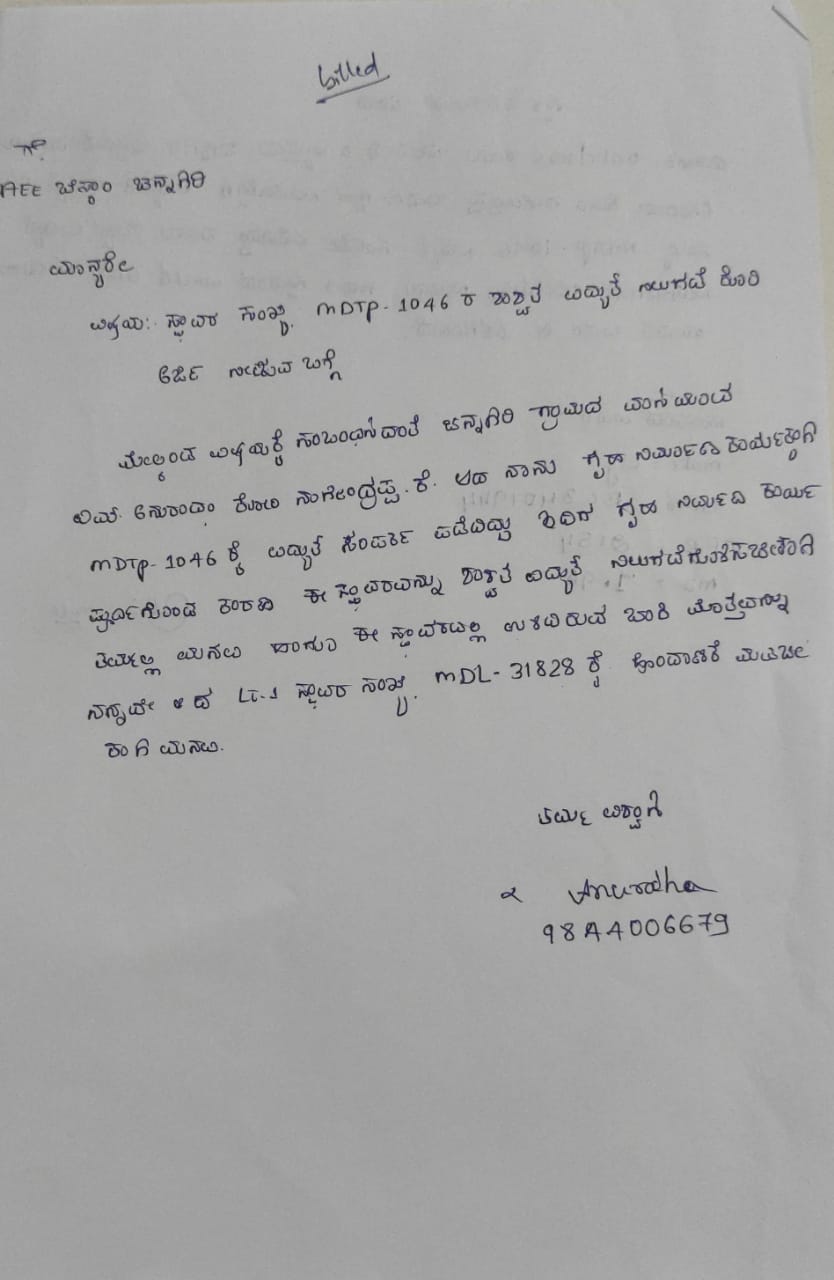 billed
ಗೆ,
AEE ಬೆಸ್ಕಾಂ ಚನ್ನಗಿರಿ
ಮಾನ್ಯರೇ
ವಿಷಯ: ಸ್ಥಾವರ ಸಂಖ್ಯೆ MDTP-1046 ರ ಶಾಶ್ವತ ವಿದ್ಯುತ್ ನಿಲುಗಡೆ ಕೋರಿ
ಅರ್ಜಿ ನೀಡುವ ಬಗ್ಗೆ
ಮೇಲ್ಕಂಡ ವಿಷಯಕ್ಕೆ ಸಂಬಂಧಿಸಿದಂತೆ ಚನ್ನಗಿರಿ ಗ್ರಾಮದ ವಾಸಿಯಾದ
ಕೋಂ ನಾಗೇಂದ್ರಪ್ಪ. ಕೆ. ಆದ ನಾನು ಗೃಹ ನಿರ್ಮಾಣ ಕಾರ್ಯಕ್ಕಾಗಿ
MDTP-1046 ಕ್ಕೆ ವಿದ್ಯುತ್ ಸಂಪರ್ಕ ಪಡೆದಿದ್ದು ಗೃಹ ನಿರ್ಮಾಣ ಕಾರ್ಯ
ಪೂರ್ಣಗೊಂಡ ಕಾರಣ ಈ ಸ್ಥಾವರವನ್ನು ಶಾಶ್ವತ ವಿದ್ಯುತ್ ನಿಲುಗಡೆಗೊಳಿಸಬೇಕಾಗಿ
ತಮ್ಮಲ್ಲಿ ಮನವಿ ಹಾಗೂ ಈ ಸ್ಥಾವರದಲ್ಲಿ ಉಳಿದಿರುವ ಬಾಕಿ ಮೊತ್ತವನ್ನು
ನನ್ನದೇ ಆದ LT-1 ಸ್ಥಾವರ ಸಂಖ್ಯೆ MDL-31828 ಕ್ಕೆ ಹೊಂದಾಣಿಕೆ ಮಾಡಬೇ
ಕಾಗಿ ಮನವಿ.
ತಮ್ಮ ವಿಶ್ವಾಸಿ
Anuradha
9844006679